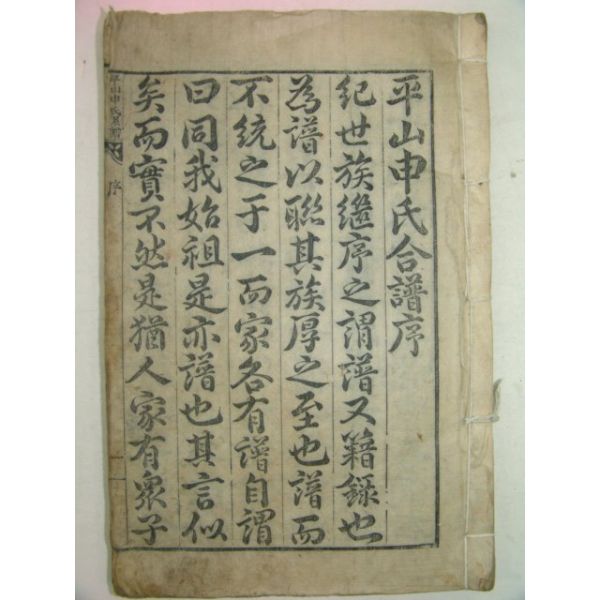 平山申氏合譜序
紀世族繼序之謂譜又籍録也
為譜以聯其族厚之至也譜而
不統之于一而家各有譜自謂
曰同我始祖是亦譜也其言似
矣而實不然是猶人家有衆子
平山申氏
序